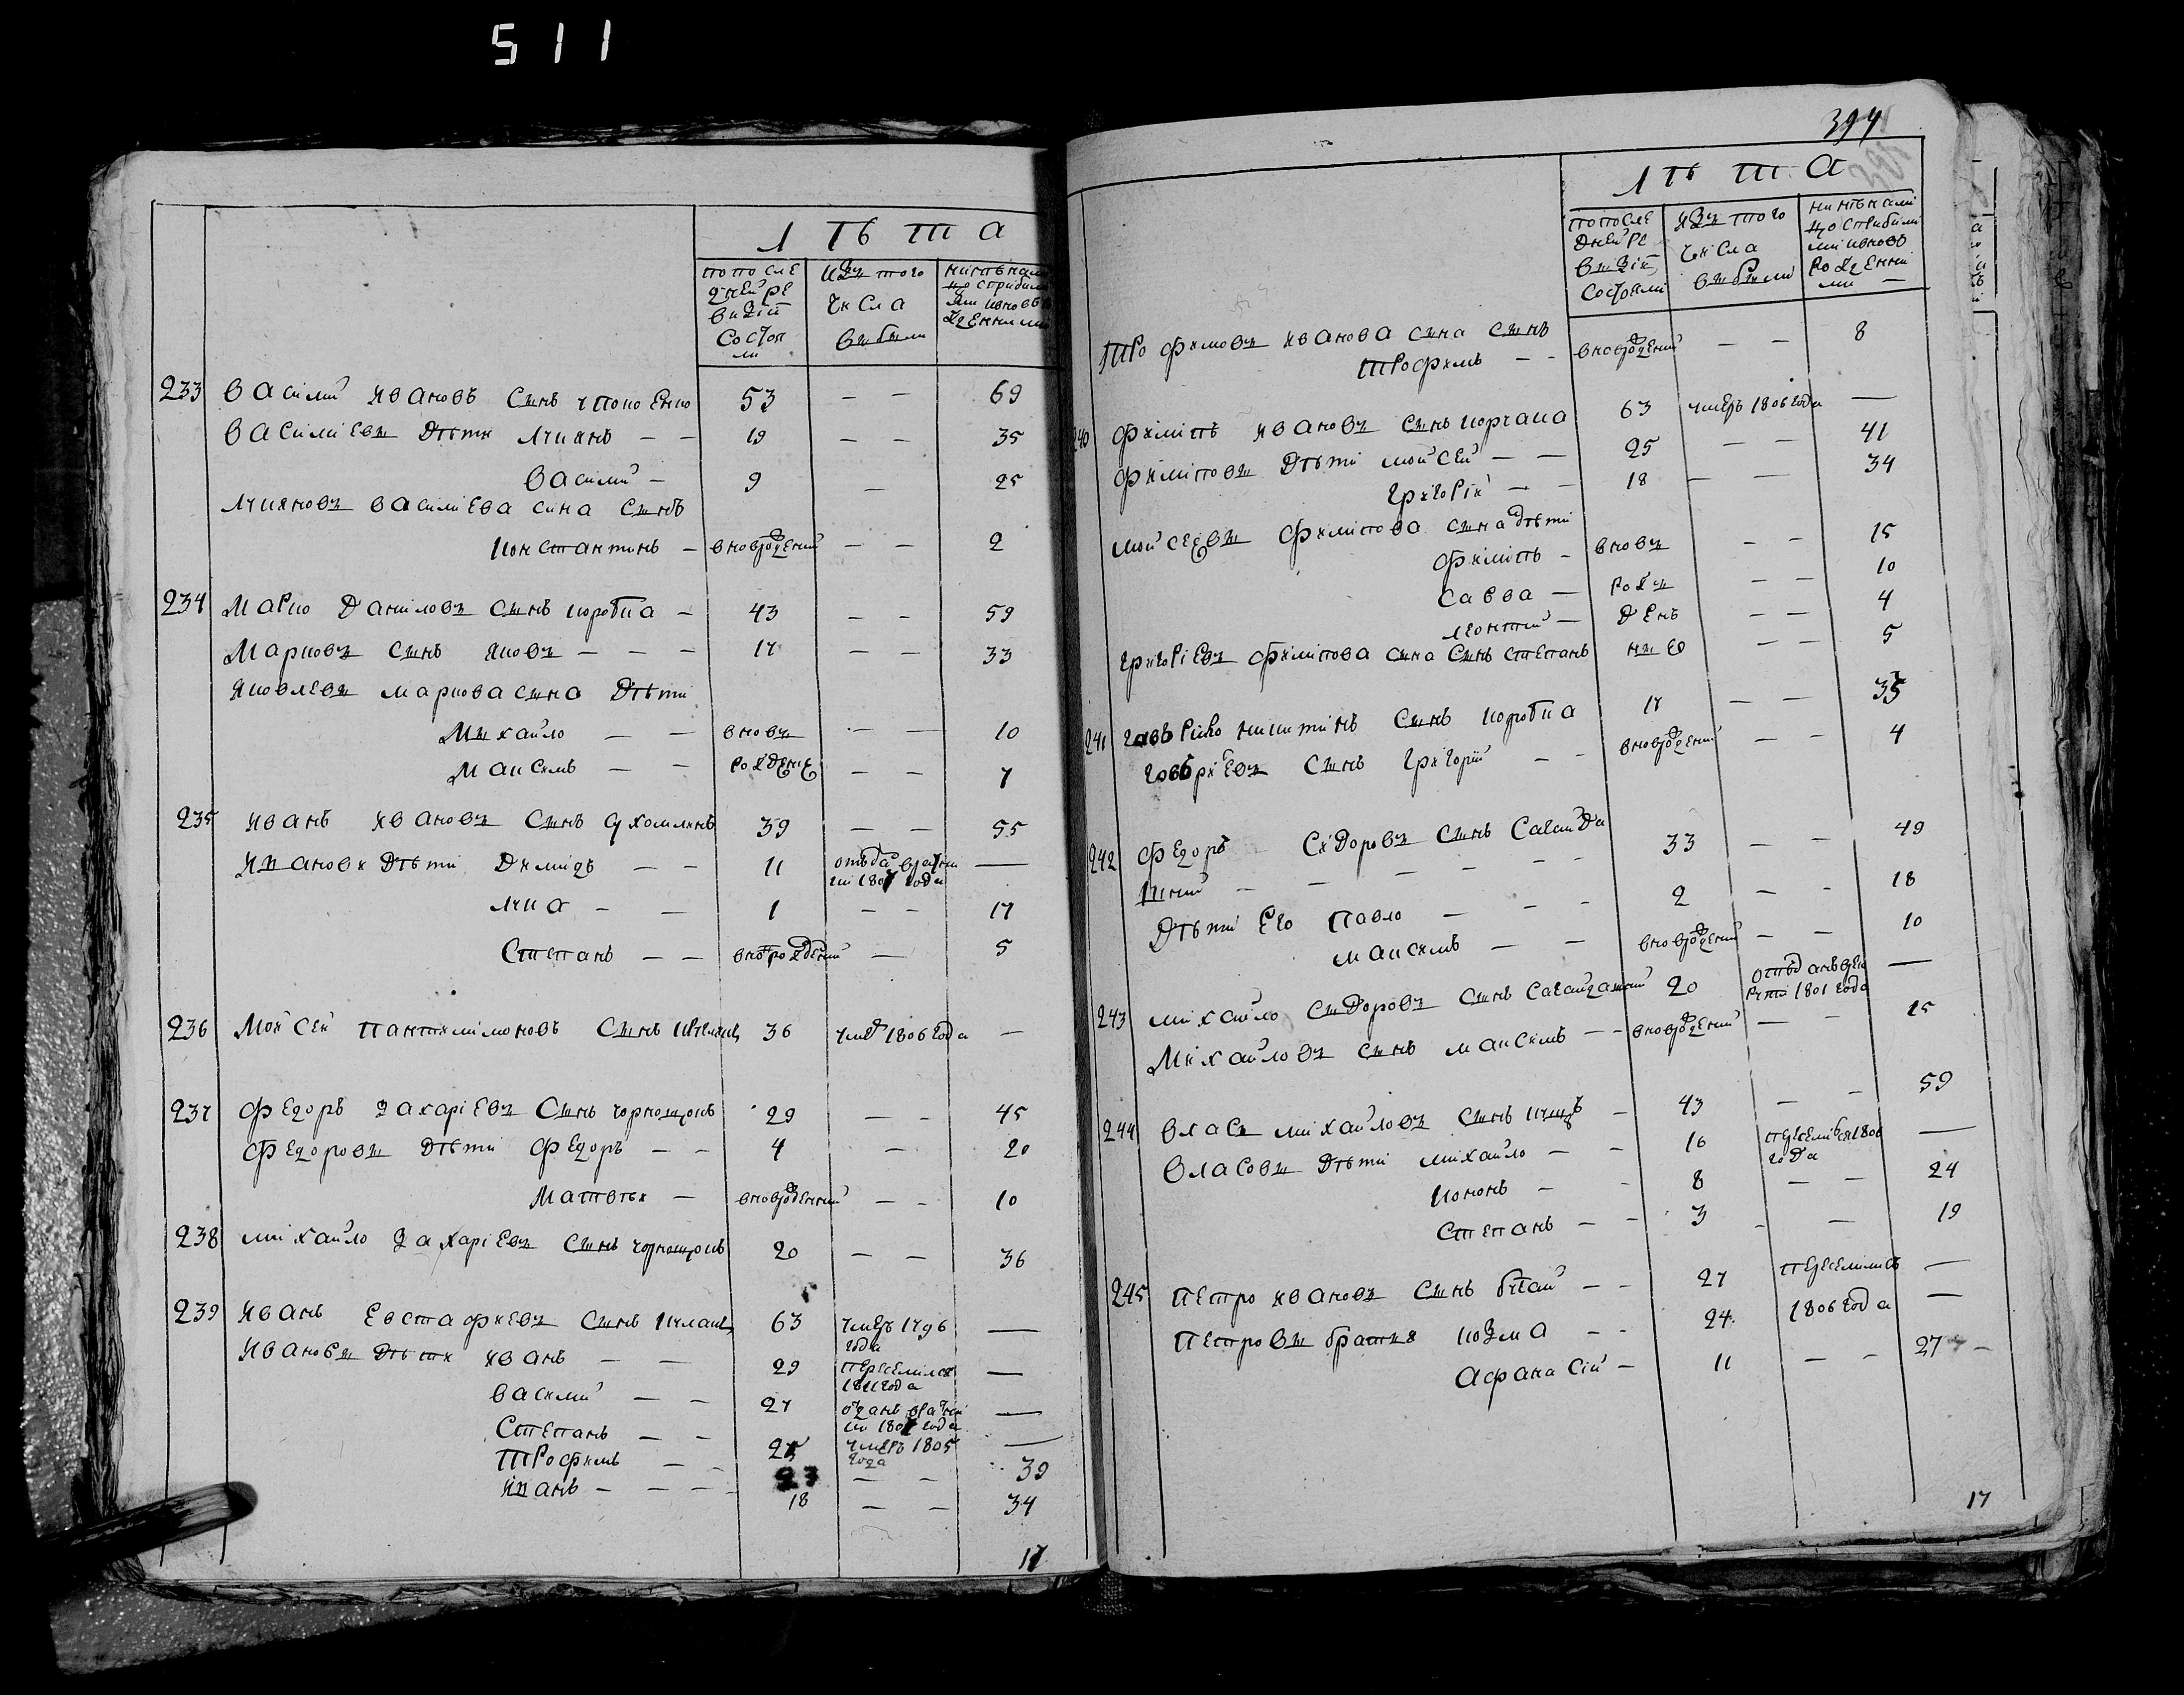 511
Лѣта
по после
дней ре
визіи
состоя
ли
изъ того
числа
выбыли
233 Василий Ивановъ сынъ 53 — — 69
Василиевы дѣти Лукянъ — — 19 — — 35
Василий — 9 — 25
Лукяновъ Василиева сина сынъ
Константинъ — вноврождений — — 2
234 Марко Даниловъ сынъ Коробка — 43 — — 59
Марковъ сынъ Яковъ — — — 17 — — 33
Яковлевы Маркова сына дѣти
Михайло — — вновъ — — 10
Максимъ — — рожденіе — — 7
235 Иванъ Ивановъ сынъ Ухомлинъ 39 — — 55
Ивановы дѣти Демидъ — — 11 отъда врекру
ти 1807 года —
Лука — — 1 — — 17
Степанъ — — вновьрожденій — 5
236 Мойсей Пантилимоновъ сынъ 36 умер 1806 года —
237 Федоръ Захаріевъ сынъ Чорнощокъ 29 — — 45
Федоровы дѣти Федоръ — — 4 — 20
Матвѣй — вноврожденний — — 10
238 Михайло Захаріевъ сынъ Чорнощокъ 20 — — 36
239 Иванъ Евстафиевъ сынъ 63 умеръ 1796
года —
Ивановы дѣти Иванъ — — 29 переселился
1811 года —
Василий — — 27 отданъ врекру
ти 1807 года —
Степанъ — — 25 умеръ 1805
года —
Трофимъ — — 23 — — 39
Иванъ — — — — 18 — — 34
17
394
Лѣта
по после
дней ре
визіи
состояли
изъ того
числа
выбыли
нинѣ на ли
цо с прибили
ми и вновъ
рожденни
ми —
Трофимовъ Иванова сина сынъ
Трофимъ — — вноврожденій — — 8
240 Филипъ Ивановъ сынъ Корчака 63 умеръ 1806 года —
Филиповы дѣти Мойсей — — 25 — — 41
Григорій — — 18 — — 34
Мойсеевы Филипова сына дѣти
Филипъ — вновъ — — 15
Савва — рож — — 10
Леонтий — денъ — — 4
Григоріевъ Филипова сина сынъ Степанъ ние — — 5
241 Гавърило Никитинъ сынъ Коробка 17 — — 33
Гавъриевъ сынъ Григорій — — вноврожденій — — 4
242 Федоръ Сидоровъ сынъ Сагайда
шний — — — — — — 33 — — 49
Дѣти его Павло — — — 2 — — 18
Максимъ — — вноврожденій — — 10
243 Михайло Сидоровъ сынъ Сагайдашний 20 отъданъ вре
крути 1801 года —
Михайловъ сынъ Максимъ — — вноврожденій — — 15
244 Власъ Михайловъ сынъ — 43 — — 59
Власовы дѣти Михайло — — 16 переселился 1806
года —
Кононъ — — 8 — — 24
Степанъ — — 3 — — 19
245 Петро Ивановъ сынъ Бугай — — 27 переселилисъ —
Петровы братия Козма — — 24 1806 года —
Афанасій — 11 — — 27 —
17